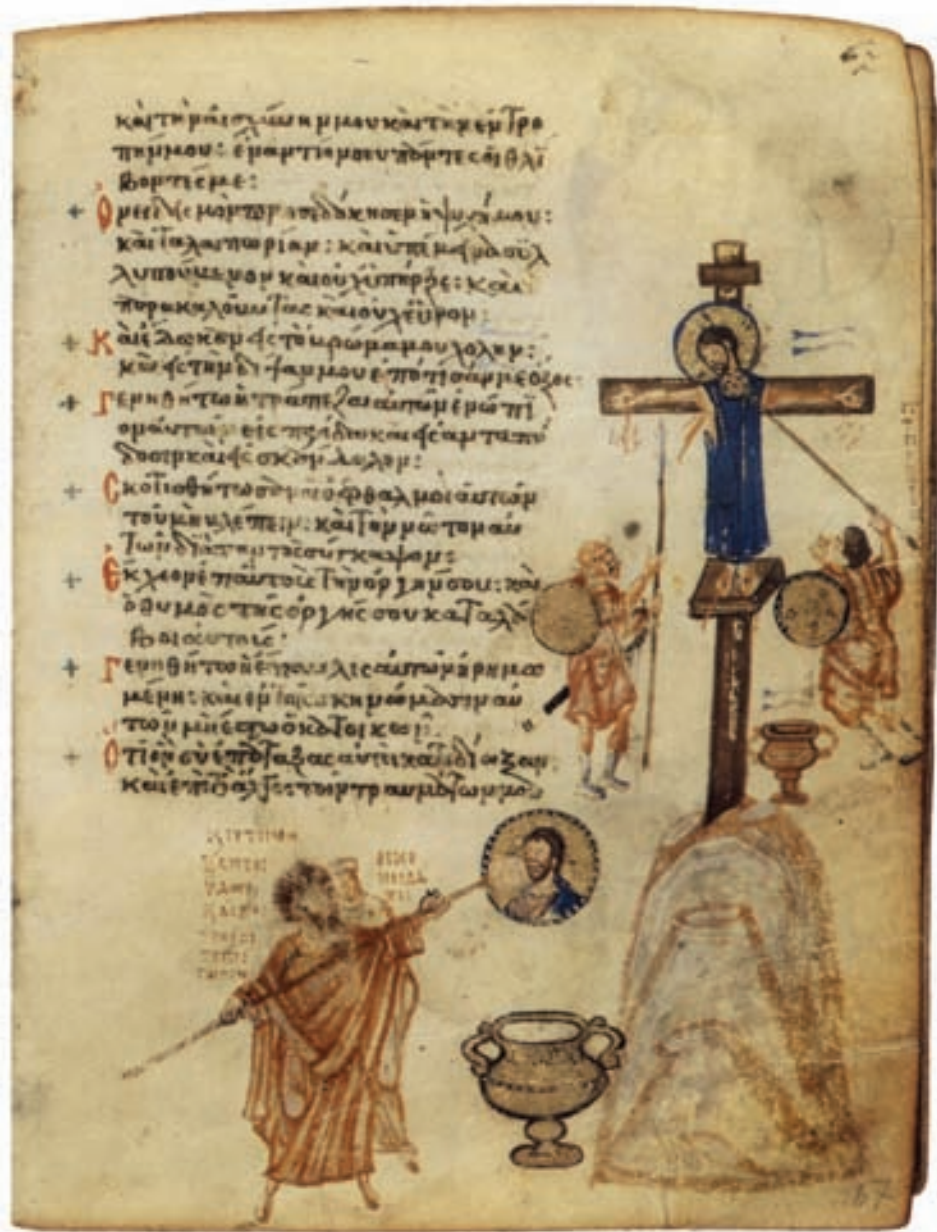 καὶ τὴν αἰσχύνην μου καὶ τὴν ἐντρο
πήν μου: ἐναντίον σου πάντες οἱ θλί
βοντές με:
Ὀνειδισμὸν προσεδόκησεν ἡ ψυχή μου:
καὶ ταλαιπωρίαν: καὶ ὑπέμεινα συλ
λυπούμενον καὶ οὐχ ὑπῆρξε: καὶ
παρακαλοῦντας καὶ οὐχ εὗρον:
Καὶ ἔδωκαν εἰς τὸ βρῶμά μου χολήν:
καὶ εἰς τὴν δίψαν μου ἐπότισάν με ὄξος:
Γενηθήτω ἡ τράπεζα αὐτῶν ἐνώπι
ον αὐτῶν εἰς παγίδα καὶ εἰς ἀνταπό
δοσιν καὶ εἰς σκάνδαλον:
Σκοτισθήτωσαν οἱ ὀφθαλμοὶ αὐτῶν
τοῦ μὴ βλέπειν: καὶ τὸν νῶτον αὐ
τῶν διὰ παντὸς σύγκαμψον:
Ἔκχεον ἐπ' αὐτοὺς τὴν ὀργήν σου: καὶ
ὁ θυμὸς τῆς ὀργῆς σου καταλά
βοι αὐτούς:
Γενηθήτω ἡ ἔπαυλις αὐτῶν ἠρημω
μένη: καὶ ἐν τοῖς σκηνώμασιν αὐ
τῶν μὴ ἔστω ὁ κατοικῶν
Ὅτι ὃν σὺ ἐπάταξας αὐτοὶ κατεδίωξαν
καὶ ἐπὶ τὸ ἄλγος τῶν τραυμάτων μου
67